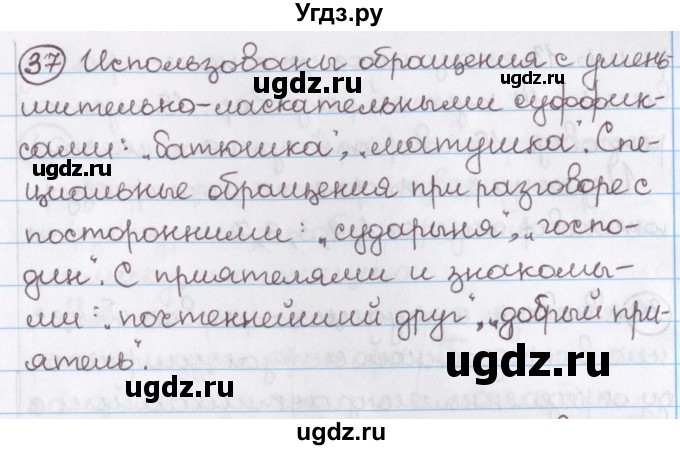 Угдз.ру
37 Использованы обращения с умень-
шительно-ласкательными суффик-
сами: „батюшка", „матушка". Спе-
циальные обращения при разговоре с
посторонними: „сударыня", „госпо-
дин". С приятелями и знакомы-
ми: „почтеннейший друг", „добрый при-
ятель".
ugdz.ru
ugdz.ru
ugdz.ru
ugdz.ru
ugdz.ru
ugdz.ru
ugdz.ru
ugdz.ru
ugdz.ru